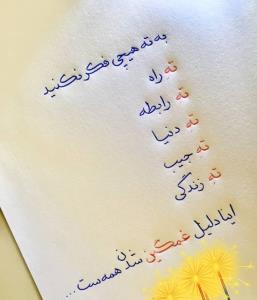 به ته هیچی فکر نکنید
ته راه
ته رابطه
ته دنیا
ته جیب
ته زندگی
اینا دلیل غمگین شدن
همه‌ست...